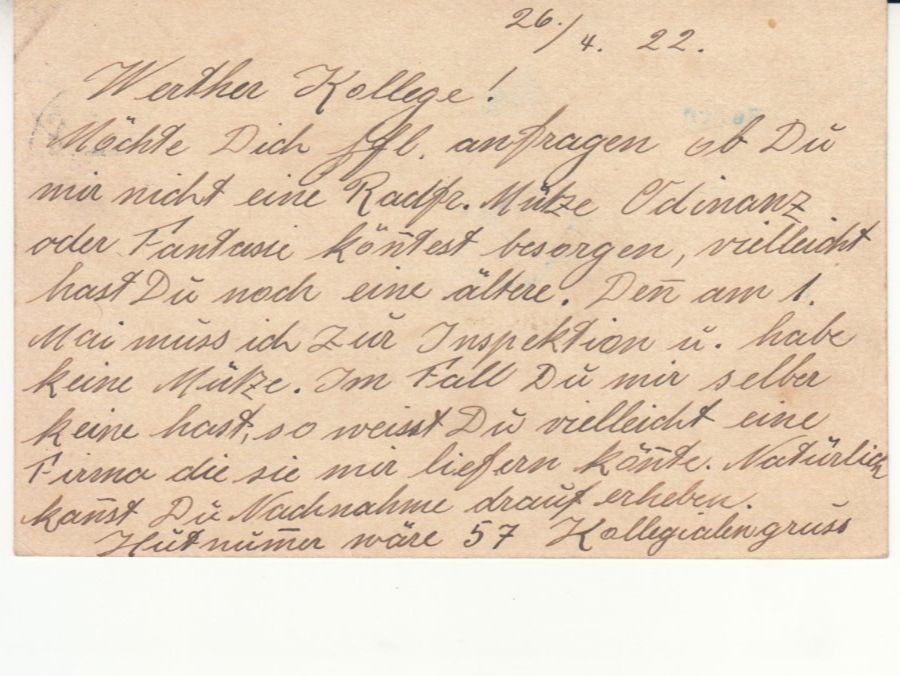 26./4. 22.
Werther Kollege!
Möchte Dich ffl. anfragen ob Du
mir nicht eine Radfr. Mütze Odinanz
oder Fantasie kön̄test besorgen, vielleicht
hast Du noch eine ältere. Den̄ am 1.
Mai muss ich zur Inspektion u. habe
keine Mütze. Im Fall Du mir selber
keine hast, so weisst Du vielleicht eine
Firma die sie mir liefern kön̄te. Natürlich
kan̄st Du Nachnahme drauf erheben.
Hutnum̄er wäre 57 Kollegialengruss